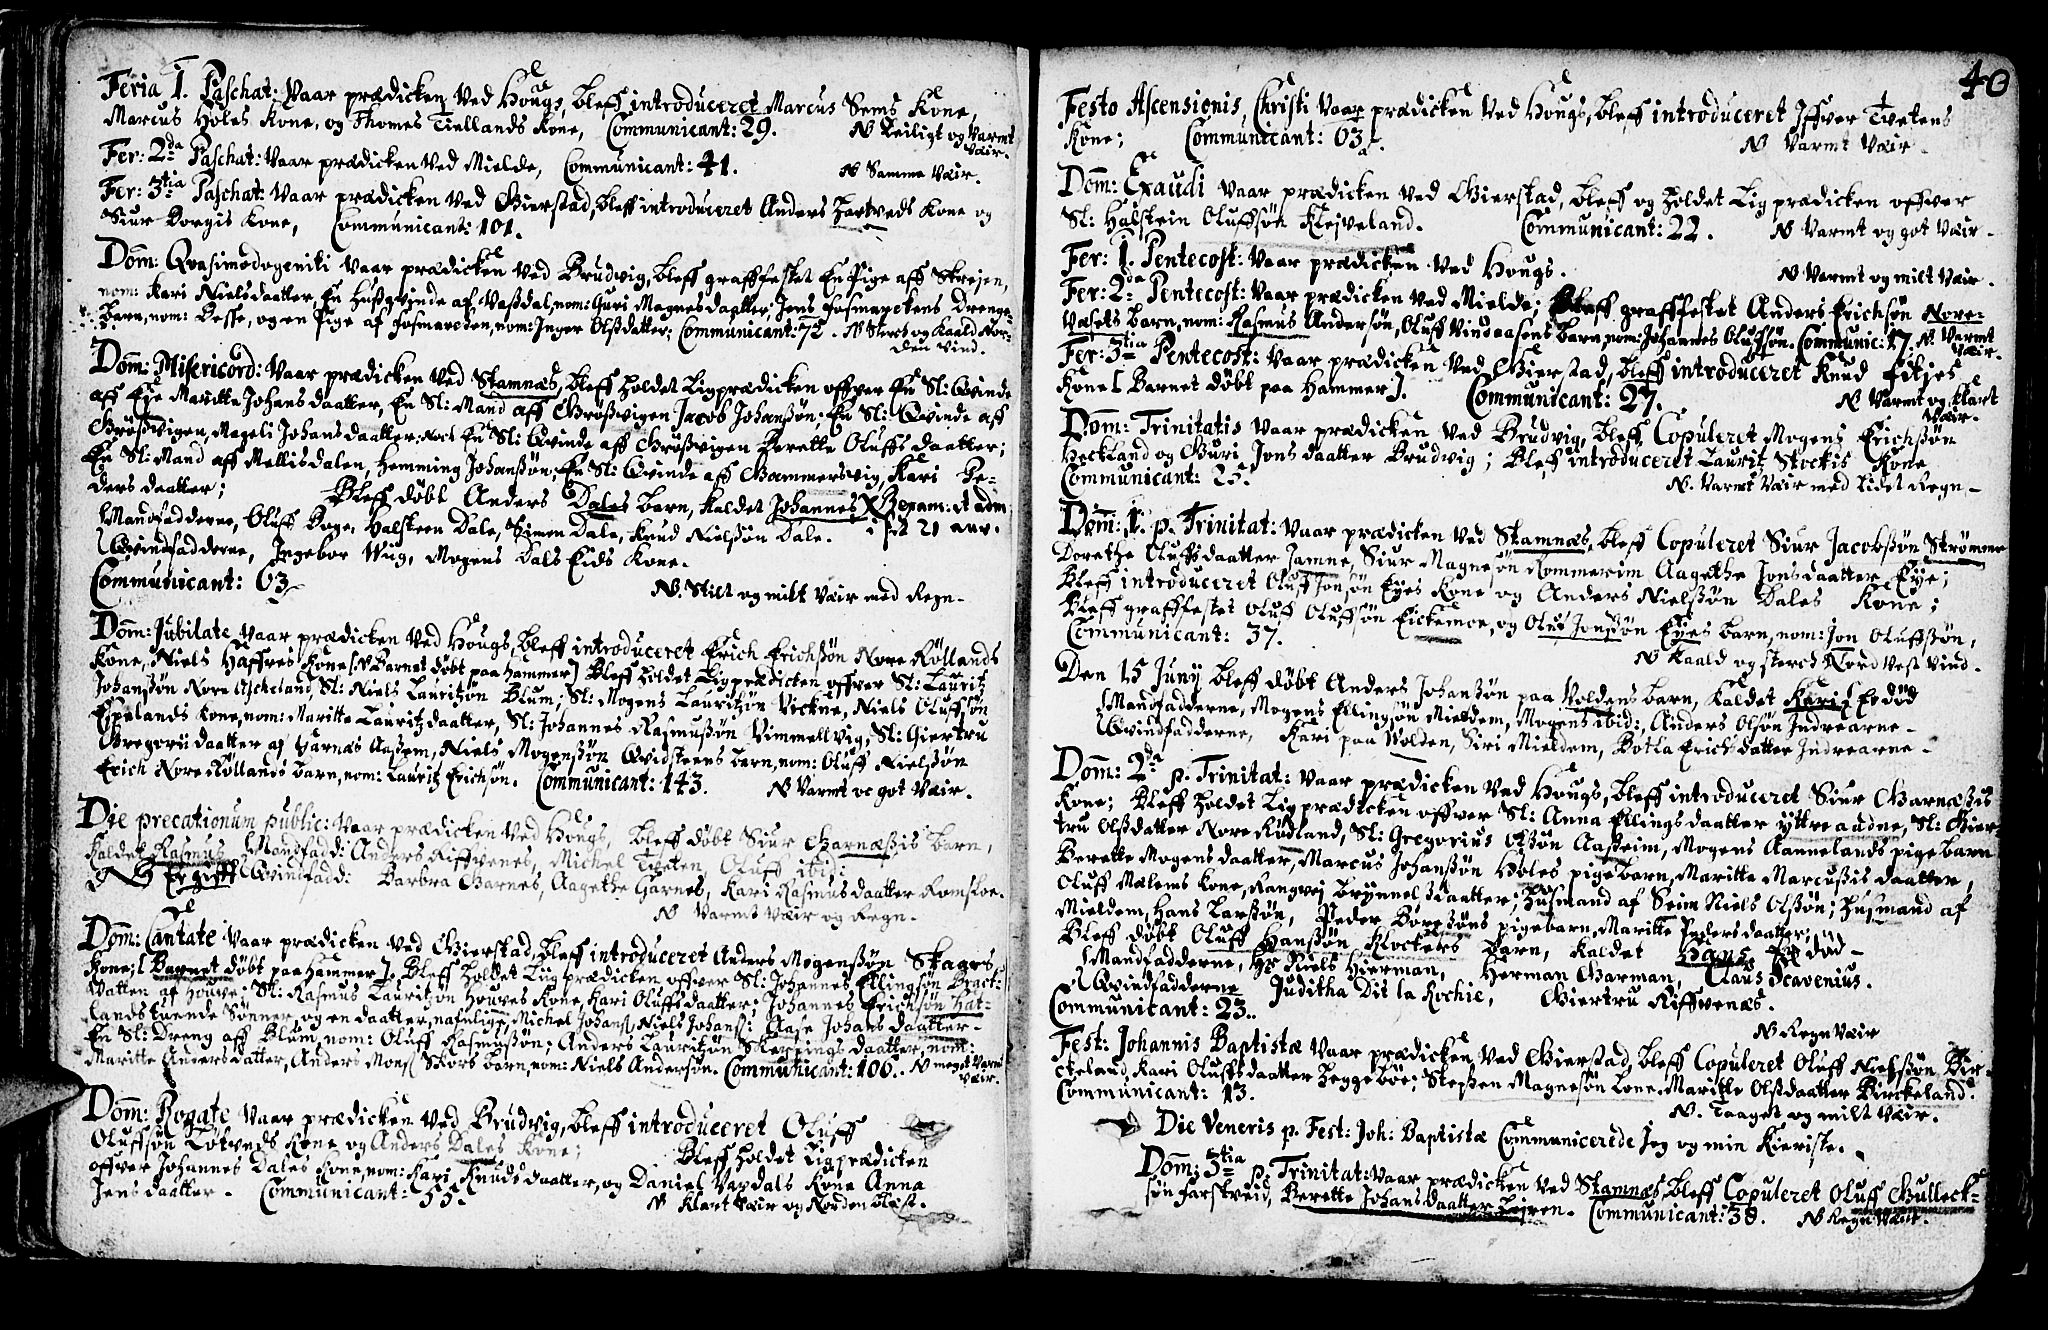 Feria 1. Paschat: Vaar prædicken Ved Hougs, bleff introduceret Marcus Sems Kone,
Marcus Holes Kone, og Thomes Tiellands Kone, Communicant: 29. NB Leiligt og Varmt
Vær.
Fer: 2da Paschat: Vaar prædicken Ved Mielde, Communicant: 41. NB Samme Vær.
Fer: 3tia Paschat: Vaar prædicken Ved Gierstad, bleff introduceret Anders Hartveds Kone og
Siur Borgis Kone, Communicant: 101.
Dom: Qvasimodogeniti Vaar prædicken Ved Brudvig, bleff grafffestet En Pige aff Skrejen,
nom: Kari Nielsdaatter, En Hußqvinde af Vaßdal, nom: Guri Magnesdaatter, Jens Fosmarckens Drenge
barn, nom: Besse, og en Pige af Fosmarcken, nom: Inger Olßdatter; Communicant: 72. NB Sterch og Kaald Nor-
den Vind.
Dom: Misericord: Vaar prædicken Ved Stamnæs, bleff holdet Ligprædicken offver En Sl: Qvinde
aff Eje Maritte Johansdaatter, En Sl: Mand aff Großvigen Jacob Johanßøn; En Sl: Qvinde aff
Großvigen, Mageli Johansdaatter; Noch En Sl: Qvinde aff Großvigen Berette Oluffs daatter;
En Sl: Mand aff Mellisdalen, Hemming Johanßøn; En Sl: Qvinde aff Gammersvig, Kari Pe-
ders daatter; Bleff døbt Anders Dales barn, kaldet Johannes X Bexam: et adm
Mandfadderne, Oluff Boge, Halsteen Dale, Simen Dale, Knud Nielßøn Dale. i sit 21 aar.
Qvindfadderne, Ingebor Wug, Mogens Dals Eids Kone.
Communicant: 63 NB. Stilt og milt Vær med Regn-
Dom: Jubilate Vaar prædicken Ved Hougs, bleff introduceret Erich Erichßøn Nore Röllands
Kone, Niels Haffres Kone [NB Barnet døbt paa Hammer] Bleff holdet Ligprædicken offver Sl: Lauritz
Johanßøn Nore Ascheland, Sl: Niels Lauritzøn Blum, Sl: Mogens Lauritzøn Vickne, Niels Oluffsøn
Espelands Kone, nom: Maritte Lauritzdaatter, Sl: Johannes Rasmußøn Vimmellvig, Sl: Giertru
Gregorii daatter af Garnæs Aaßem, Niels Mogenßøn Qvidsteens barn, nom: Oluff Nielßøn
Erich Nore Röllands barn, nom: Lauritz Erichßøn. Communicant: 143. NB Varmt oc got Vær.
Die precationum public: Vaar prædicken Ved Hougs, bleff døbt Siur Garnæßis barn,
Kaldet Rasmus Mandfadd: Anders Riffvenes, Michel Tveten Oluff ibid:
NB Er gifft Qvindfadd: Barbra Garnes, Aagethe Garnes, Kari Rasmusdaatter Romsloe.
NB Varmt Vær og Regn.
Dom: Cantate Vaar prædicken Ved Gierstad, bleff introduceret Anders Mogenßøn Skaars
Kone; [Barnet døbt paa Hammer]. Bleff holdet Lig prædicken offver Sl: Johannes Ellingßøn Bract:
Vatten af Houve; Sl: Rasmus Lauritzøn Houves Kone, Kari Oluffsdaatter; Johannes Erichsøn Hat-
lands tuende Sønner, og en daatter, nafnligen Michel Johanß, Niels Johanß: Aase Johans daatter-
En Sl: Dreng aff Blum, nom: Oluff Rasmußøn; Anders Lauritzøn Skerpings daatter, nom:
Maritte Andersdatter, Anders Monß Skors barn, nom: Niels Andersøn. Communicant: 106. NB meget Varmt
Vær.
Dom: Rogate Vaar prædicken Ved Brudvig, bleff introduceret Oluff
Oluffsøn Totveds Kone og Anders Dales Kone; Bleff holdet Ligprædicken
offver Johannes Dales Kone, nom: Kari Knudsdaatter, og Daniel Vaxdals Kone Anna
Jensdaatter. Communicant: 55. NB Klart Vær og Norden blæst.
40
Festo Ascensionis Christi Vaar prædicken Ved Hougs, bleff introduceret Iffver Tvetens
Kone; Communicant: 63. NB Varmt Vær.
Dom: Exaudi Vaar prædicken Ved Gierstad, bleff og holdet Lig prædicken offver
Sl: Halstein Oluffsøn Klejveland. Communicant: 22. NB Varmt og got Vær-
Fer: 1. Pentecost: Vaar prædicken Ved Hougs. NB Varmt og milt Vær.
Fer: 2da Pentecost: Vaar prædicken Ved Mielde; Bleff grafffestet Anders Erichsøn Nore-
Væsets barn, nom: Rasmus Andersøn, Oluff Vindaasens barn, nom: Johannes Olufsøn. Communic: 17. NB Varmt
Vær.
Fer: 3tia Pentecost: Vaar prædicken Ved Gierstad, bleff introduceret Knud Fitjes
Kone [Barnet døbt paa Hammer]. Communicant: 27. NB Varmt og klart
Vær.
Dom: Trinitatis Vaar prædicken Ved Brudvig, bleff Copuleret Mogens Erichßøn
Heckland og Guri Jonsdaatter Brudvig; Bleff introduceret Lauritz Stockis Kone
Communicant: 25. NB. Varmt Vær med Lidet Regn-
Dom: 1. p. Trinitat: Vaar prædicken Ved Stamnæs, bleff Copuleret Siur Jacobßøn Strømme
Dorethe Oluffsdaatter Jamne, Siur Magneßøn Rommerim Aagethe Jonsdaatter Eye;
Bleff introduceret Oluff Jonßøn Eyes Kone og Anders Nielßøn Dales Kone;
Bleff grafffestet Oluff Oluffsøn Eickemoe, og Oluf Jonßøn Eyes barn, nom: Jon Oluffsøn,
Communicant: 37. NB Kaald og sterch Nord Vest Vind.
Den 15 Juny bleff døbt Anders Johanßøn paa Voldens barn, Kaldet Kari Er død
Mandfadderne, Mogens Ellingsøn Mieldem, Mogens ibid:, Anders Olßøn Indrearne-
Qvindfadderne, Kari paa Volden, Siri Mieldem, Botla Erichsdatter Indrearne-
Dom: 2da p. Trinitat: Vaar prædicken Ved Hougs, bleff introduceret Siur Garnæßis
Kone; Bleff holdet Lig prædicken offver Sl: Anna Ellings daatter yttre aadne, Sl: Gier-
tru Olßdatter Nore Rødland, Sl: Gregorius Olßøn Aaßeim, Mogens Aannelands pige barn
Berette Mogensdaatter, Marcus Johanßøn Holes pige barn, Maritte Marcußis daatter,
Oluff Mælems Kone, Rangvej Brynnels daatter; Husmand af Seim Niels Olßøn; Husmand af
Mieldem, Hans Larßøn, Peder Borgßøns pigebarn, Maritte Pedersdaatter;
Bleff døbt Oluff Hanßøn Klockers Barn, Kaldet Hans. Er død-
Mandfadderne, Hr Niels Hierman, Herman Garman, Claus Scavenius.
Qvindfadderne Juditha Dit la Rochie, Giertru Riffvenæs.
Communicant: 23. NB Regn Vær
Fest: Johannis Baptistæ Vaar prædicken Ved Gierstad, bleff Copuleret Oluff Nielßøn Bir-
ckeland, Kari Oluffsdaatter Heggeböe; Stephen Magnesøn Lone, Maritte Olßdaatter Birckeland.
Communicant: 13. NB. Taaget og milt Vær.
Die Veneris p. Fest: Joh: Baptistæ Communicerede Jeg og min Kieriste.
Dom: 3tia p. Trinitat: Vaar prædicken Ved Stamnæs, bleff Copuleret Oluff Gulleck-
søn Farstveid, Berette Johansdaatter Lejren. Communicant: 38. NB Regn Vær.